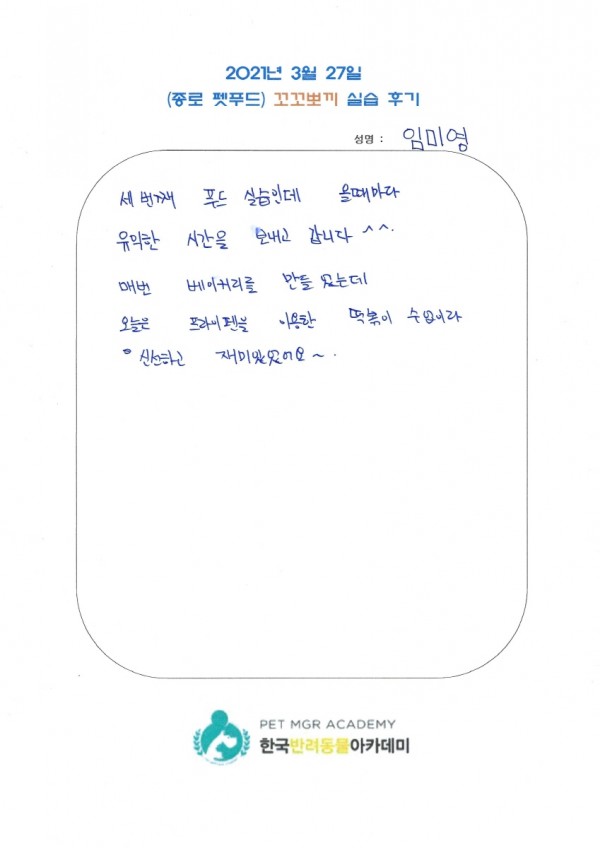 2021년 3월 27일
(종로 펫푸드) 꼬꼬뽀끼 실습 후기
성명 : 임미영
세 번째 푸드 실습인데 올때마다
유익한 시간을 보내고 갑니다 ^^.
매번 베이커리를 만들었는데
오늘은 프라이펜을 이용한 떡볶이 수업이라
신선하고 재미있었어요~.
PET MGR ACADEMY
한국반려동물아카데미